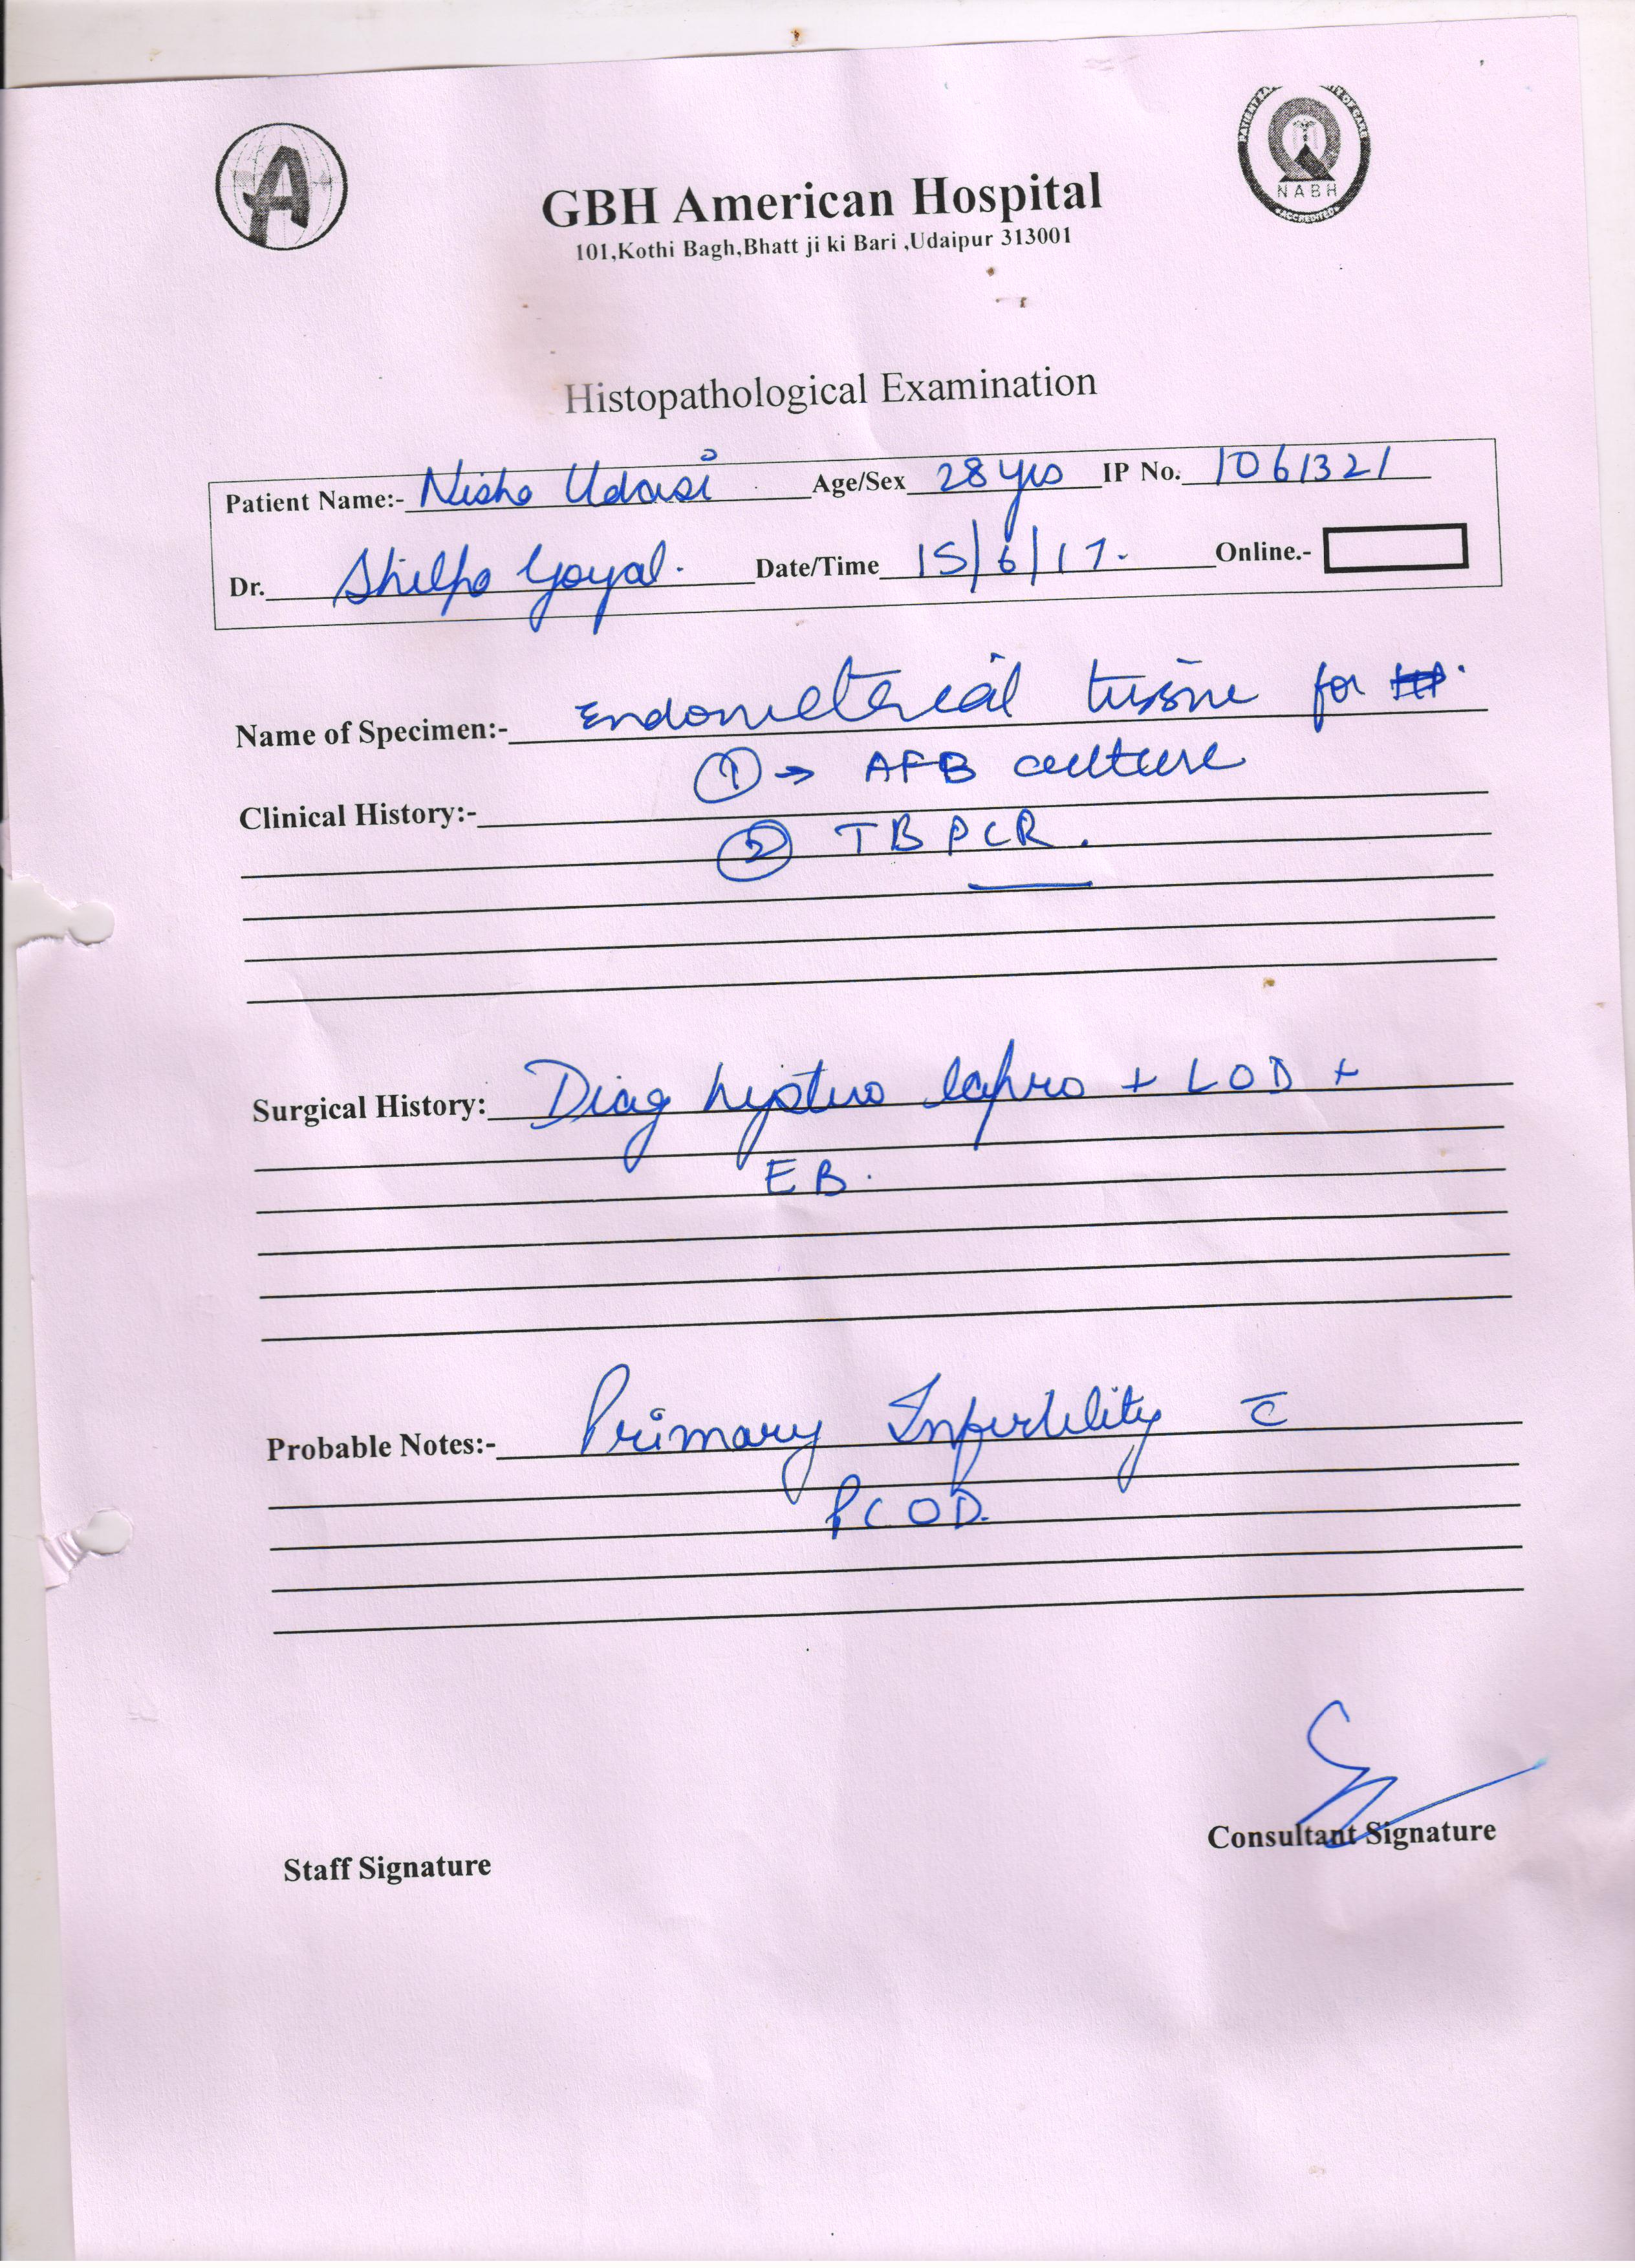 A
PATIENT SA TY OF CARE
NABH
ACCREDITED
GBH American Hospital
101,Kothi Bagh,Bhatt ji ki Bari ,Udaipur 313001
Histopathological Examination
Patient Name:- Nisha Udasi Age/Sex 28 yrs IP No. 1061321
Dr. Shilpa Goyal. Date/Time 15/6/17. Online.-
Name of Specimen:- Endometerial tissue for
① → AFB culture
Clinical History:-
② TB PCR.
Surgical History: Diag hystero lapro + LOD +
EB.
Probable Notes:- Primary Infertility c̄
PCOD.
Consultant Signature
Staff Signature